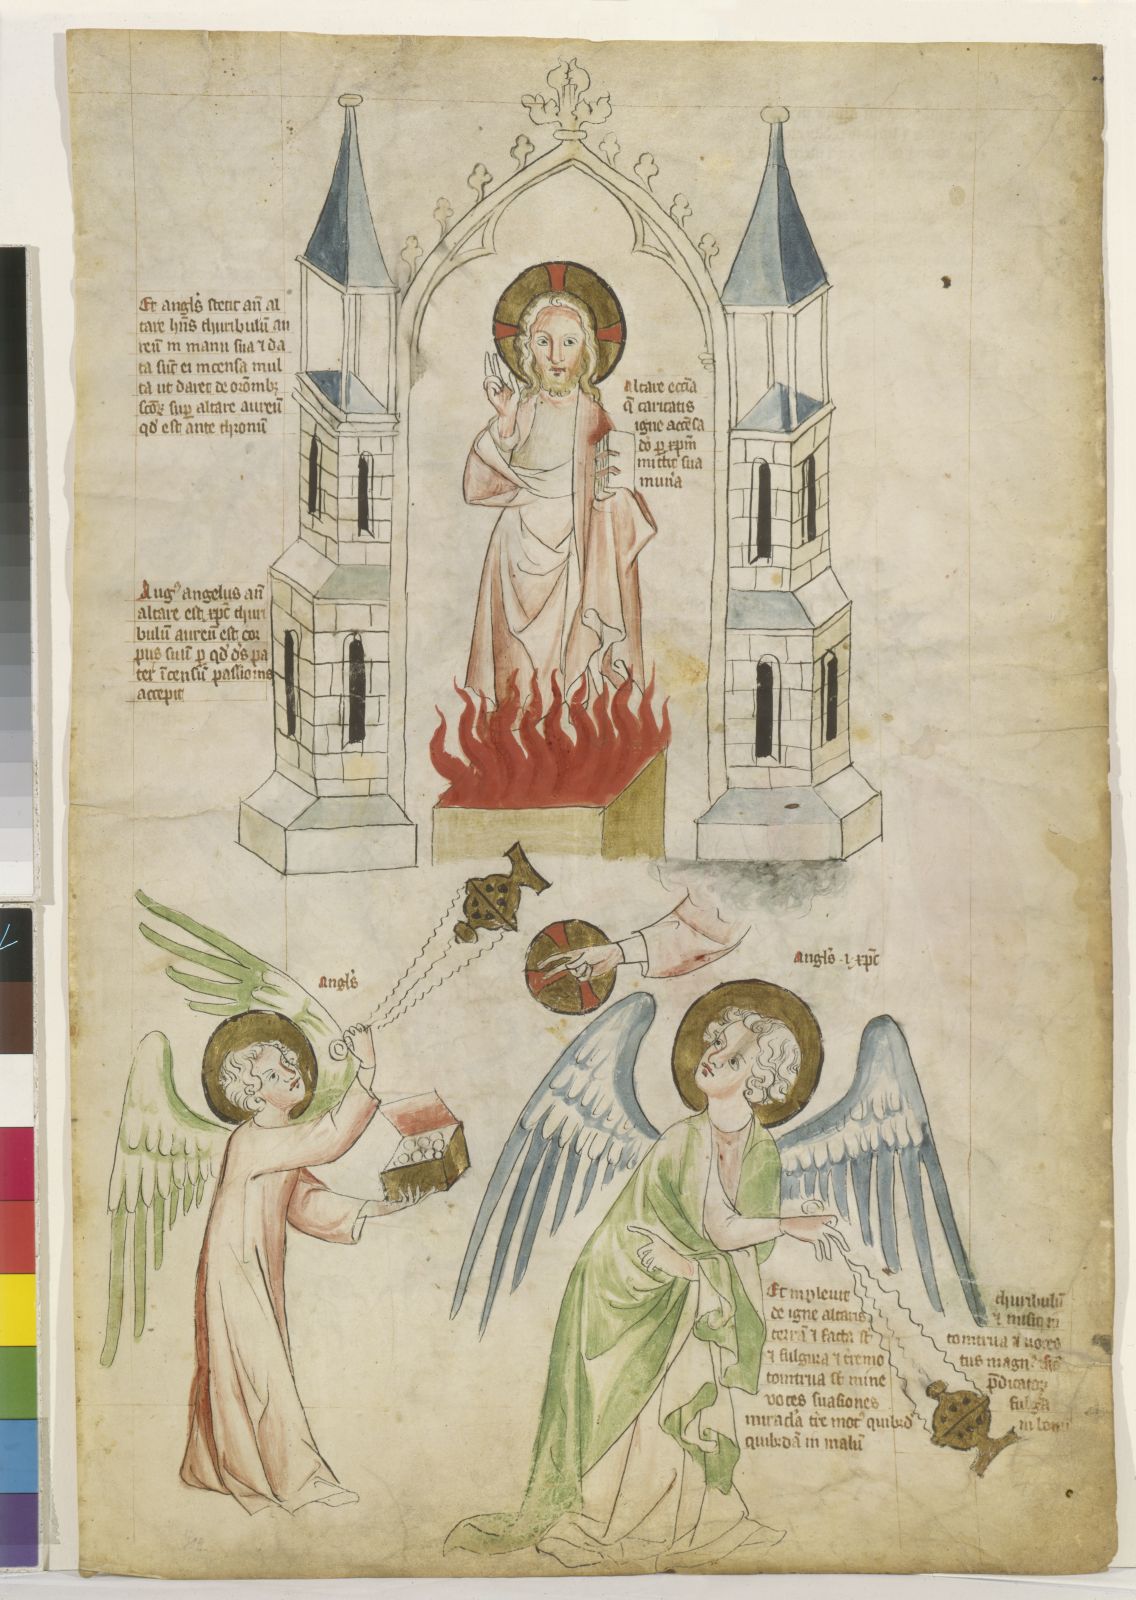 Et angl's stetit an̄ al
tare hn̄s thuribulū au
reū in manu sua ⁊ da
ta sūt ei incensa mul
ta ut daret de orōnibꝫ
scōꝝ sup̄ altare aureū
qd' est ante thronū
Altare eccl'ia
q̄ caritatis
igne accēsa
dō p xp̄m
mittit sua
mun'a
Augꝰ angelus an̄
altare est xp̄c thuri
bulū aureū est cor
pus suū p qd' d's pa
ter īcensū passionis
accepit
Angl's
Angl's ·i· xp̄c
Et impleuit
de igne altaris
terrā ⁊ facta st̄
⁊ fulgura ⁊ t'remo
tonitrua st̄ mine
voces suasiones
miracl'a t're motꝰ quibꝫd'
quibꝫdā in malū
thuribulū
⁊ misit in
tonitrua ⁊ uoces
tus magn'
p̄dicatoꝝ
fulg'a